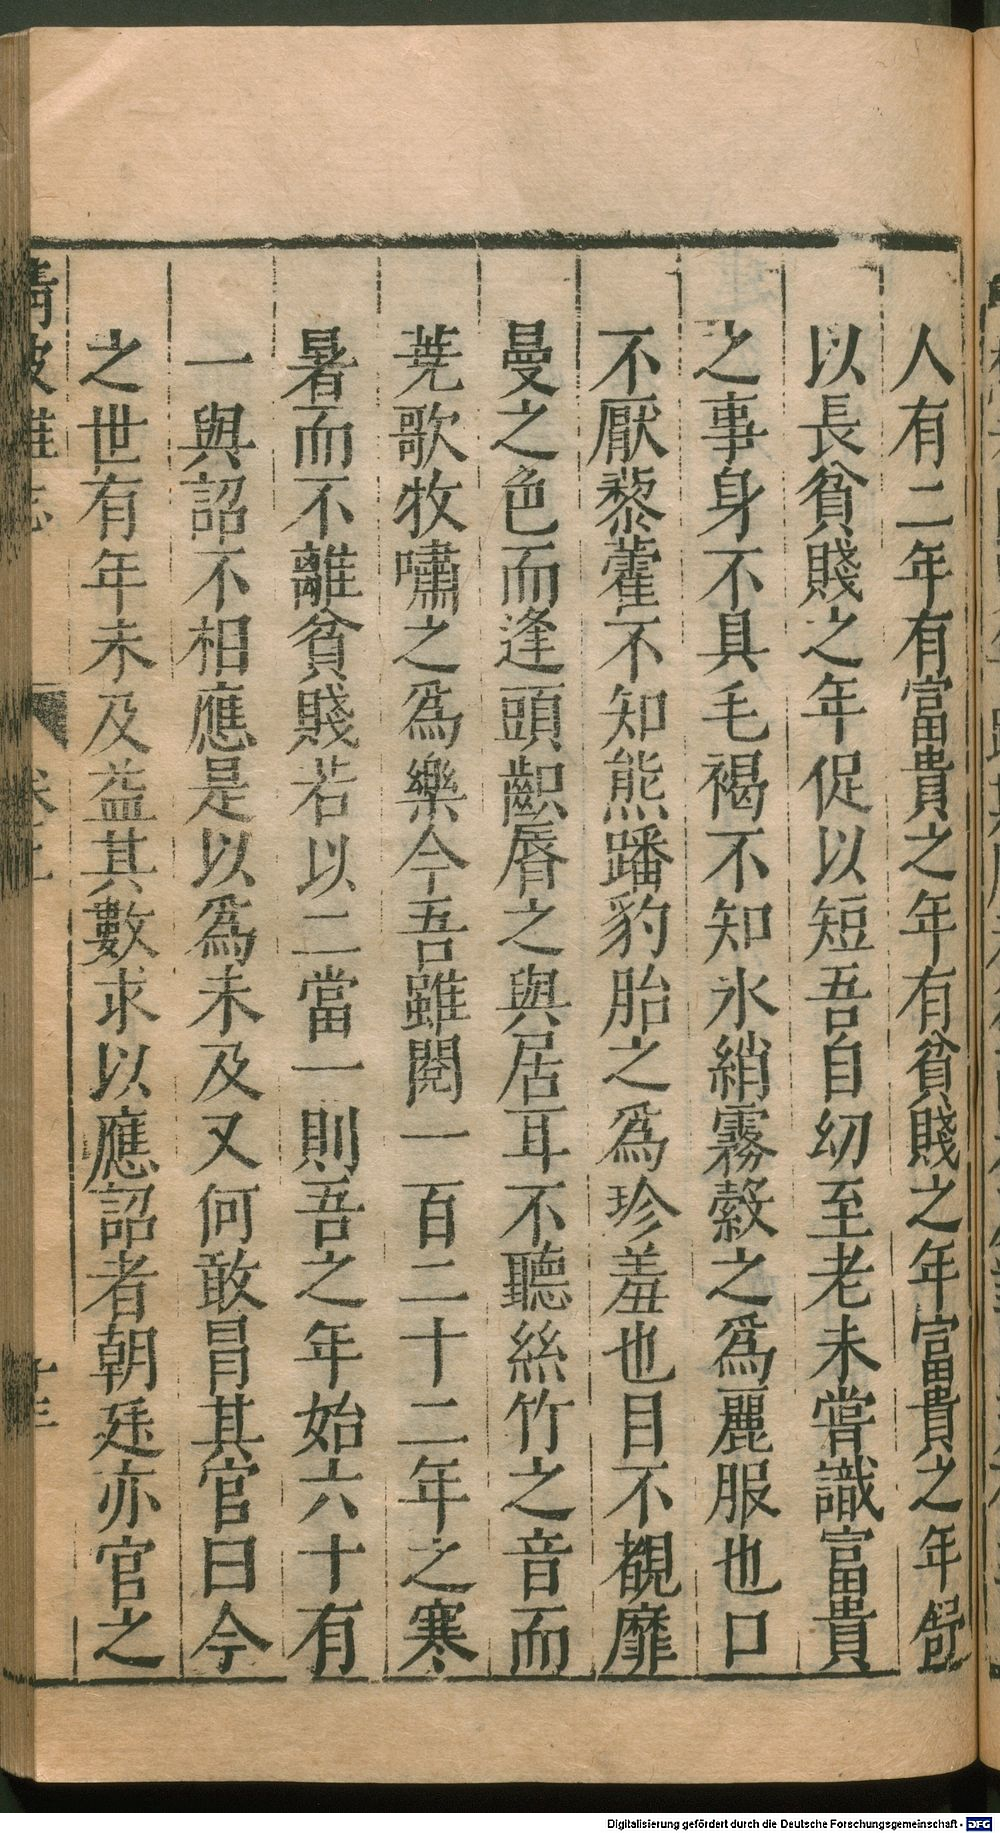 人有二年有富貴之年有貧賤之年富貴之年舒
以長貧賤之年促以短吾自幼至老未嘗識富貴
之事身不具毛褐不知氷綃霧縠之爲麗服也口
不厭藜藿不知熊蹯豹胎之爲珍羞也目不覩靡
曼之色而逢頭齞脣之與居耳不聽絲竹之音而
蕘歌牧嘯之爲樂今吾雖閱一百二十二年之寒
暑而不離貧賤若以二當一則吾之年始六十有
一與詔不相應是以爲未及又何敢冒其官曰今
之世有年未及益其數求以應詔者朝廷亦官之
清波雜志 卷
Digitalisierung gefördert durch die Deutsche Forschungsgemeinschaft - DFG